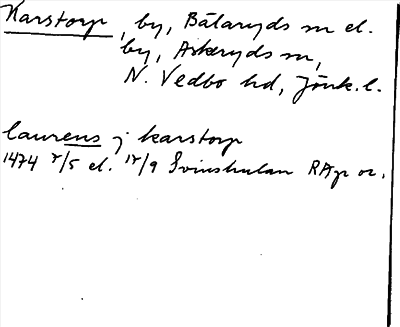 Karstorp, by, Bälaryds sn el.
by, Askeryds sn,
N. Vedbo hd, Jönk. l.
laurens j karstorp
1474 /5 el. /9 Svinhulan RAp or.